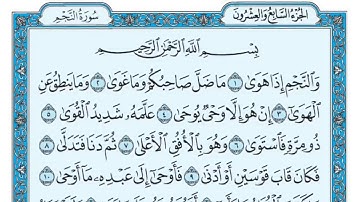 سُورَةُ النَّجْمِ
الجُزْءُ السَّابِعُ وَالعِشْرُونَ
بِسْمِ اللَّهِ الرَّحْمَٰنِ الرَّحِيمِ
وَالنَّجْمِ إِذَا هَوَىٰ ١ مَا ضَلَّ صَاحِبُكُمْ وَمَا غَوَىٰ ٢ وَمَا يَنطِقُ عَنِ
الْهَوَىٰ ٣ إِنْ هُوَ إِلَّا وَحْيٌ يُوحَىٰ ٤ عَلَّمَهُ شَدِيدُ الْقُوَىٰ ٥
ذُو مِرَّةٍ فَاسْتَوَىٰ ٦ وَهُوَ بِالْأُفُقِ الْأَعْلَىٰ ٧ ثُمَّ دَنَا فَتَدَلَّىٰ ٨
فَكَانَ قَابَ قَوْسَيْنِ أَوْ أَدْنَىٰ ٩ فَأَوْحَىٰ إِلَىٰ عَبْدِهِ مَا أَوْحَىٰ ١٠